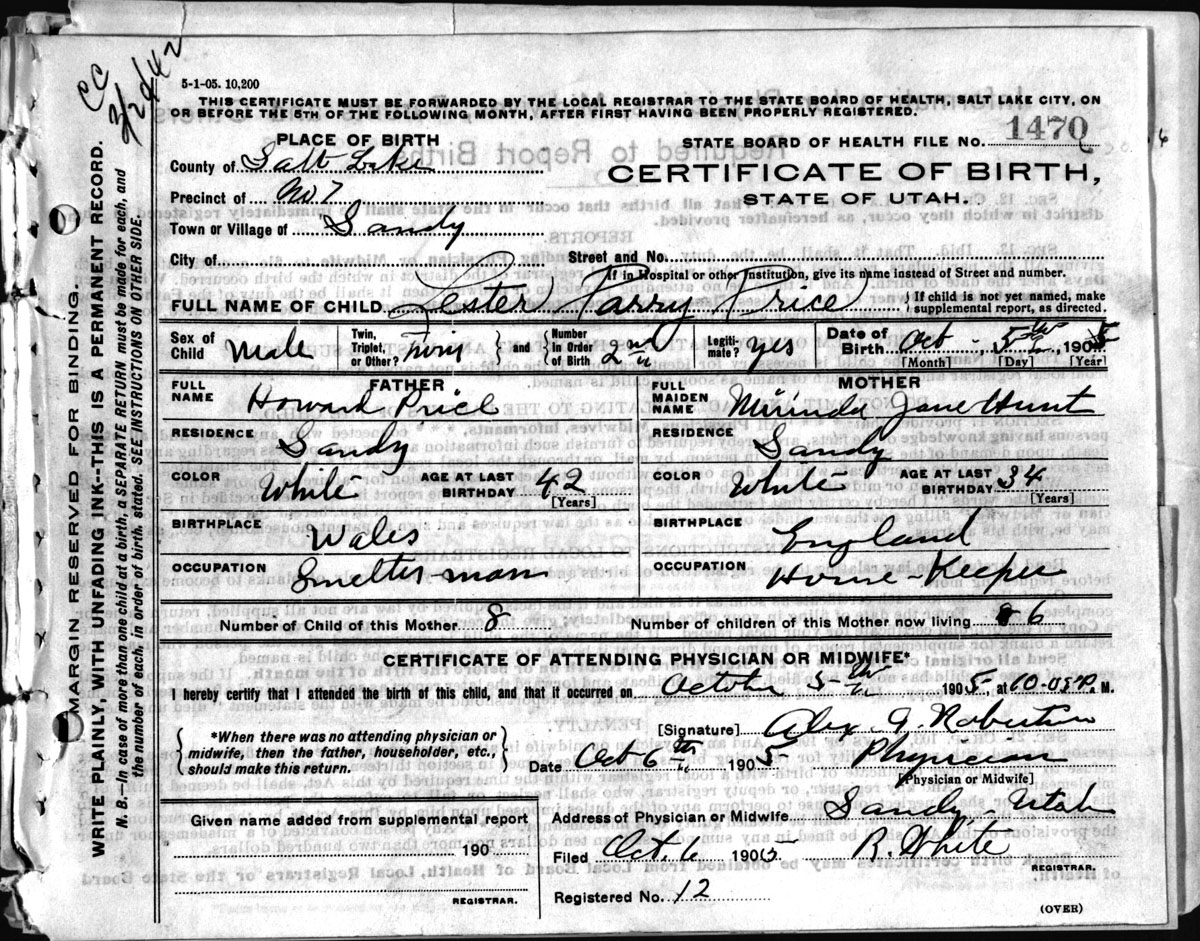 CC
3/24/42
5-1-05. 10,200
THIS CERTIFICATE MUST BE FORWARDED BY THE LOCAL REGISTRAR TO THE STATE BOARD OF HEALTH, SALT LAKE CITY, ON
OR BEFORE THE 5TH OF THE FOLLOWING MONTH, AFTER FIRST HAVING BEEN PROPERLY REGISTERED.
PLACE OF BIRTH
STATE BOARD OF HEALTH FILE No. 1470
County of Salt Lake
CERTIFICATE OF BIRTH,
Precinct of No 7
STATE OF UTAH.
Town or Village of Sandy
City of Street and No.
If in Hospital or other Institution, give its name instead of Street and number.
FULL NAME OF CHILD Lester Parry Price { If child is not yet named, make supplemental report, as directed.
Sex of Child Male Twin, Triplet, or Other? Twins } and { Number in Order of Birth 2nd Legiti- mate? yes Date of Birth Oct - 5th 1905
[Month] [Day] [Year]
FATHER MOTHER
FULL NAME Howard Price FULL MAIDEN NAME Mirinda Jane Hunt
RESIDENCE Sandy RESIDENCE Sandy
COLOR White AGE AT LAST BIRTHDAY 42 [Years] COLOR White AGE AT LAST BIRTHDAY 34 [Years]
BIRTHPLACE Wales BIRTHPLACE England
OCCUPATION Smelter man OCCUPATION House-Keeper
Number of Child of this Mother 8 Number of children of this Mother now living 6
CERTIFICATE OF ATTENDING PHYSICIAN OR MIDWIFE*
I hereby certify that I attended the birth of this child, and that it occurred on October 5th 1905, at 10-05 P. M.
{ *When there was no attending physician or midwife, then the father, householder, etc., should make this return. }
[Signature] Alex J. Robertson
Date Oct 6th 1905 Physician
[Physician or Midwife]
Given name added from supplemental report
Address of Physician or Midwife Sandy, Utah
190
Filed Oct. 6 1905 R. White
REGISTRAR. REGISTRAR.
Registered No. 12
(OVER)
MARGIN RESERVED FOR BINDING.
WRITE PLAINLY, WITH UNFADING INK--THIS IS A PERMANENT RECORD.
N. B.—In case of more than one child at a birth, a SEPARATE RETURN must be made for each, and
the number of each, in order of birth, stated. SEE INSTRUCTIONS ON OTHER SIDE.